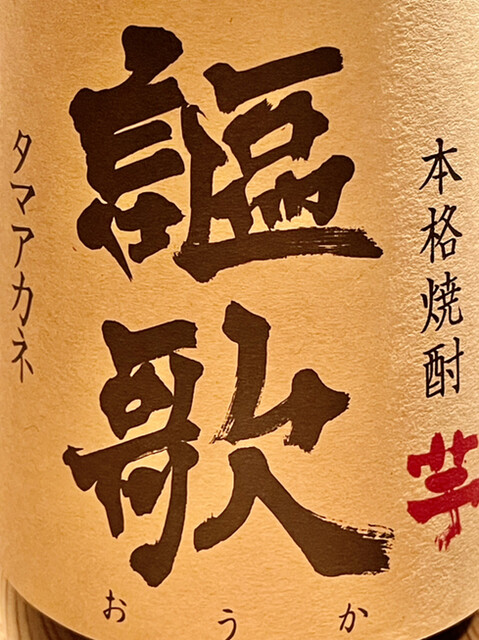 本格焼酎
芋
謳歌
おうか
タマアカネ